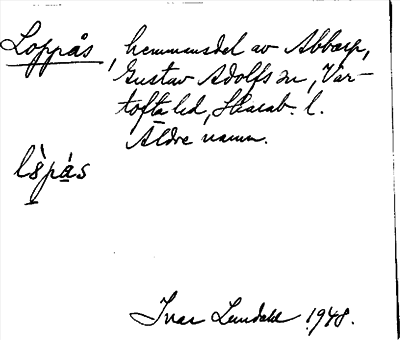 Loppås, hemmansdel av Abbarp,
Gustav Adolfs sn, Var-
tofta hd, Skarab. l.
Äldre namn.
lòpås
Ivar Lundahl 1948.